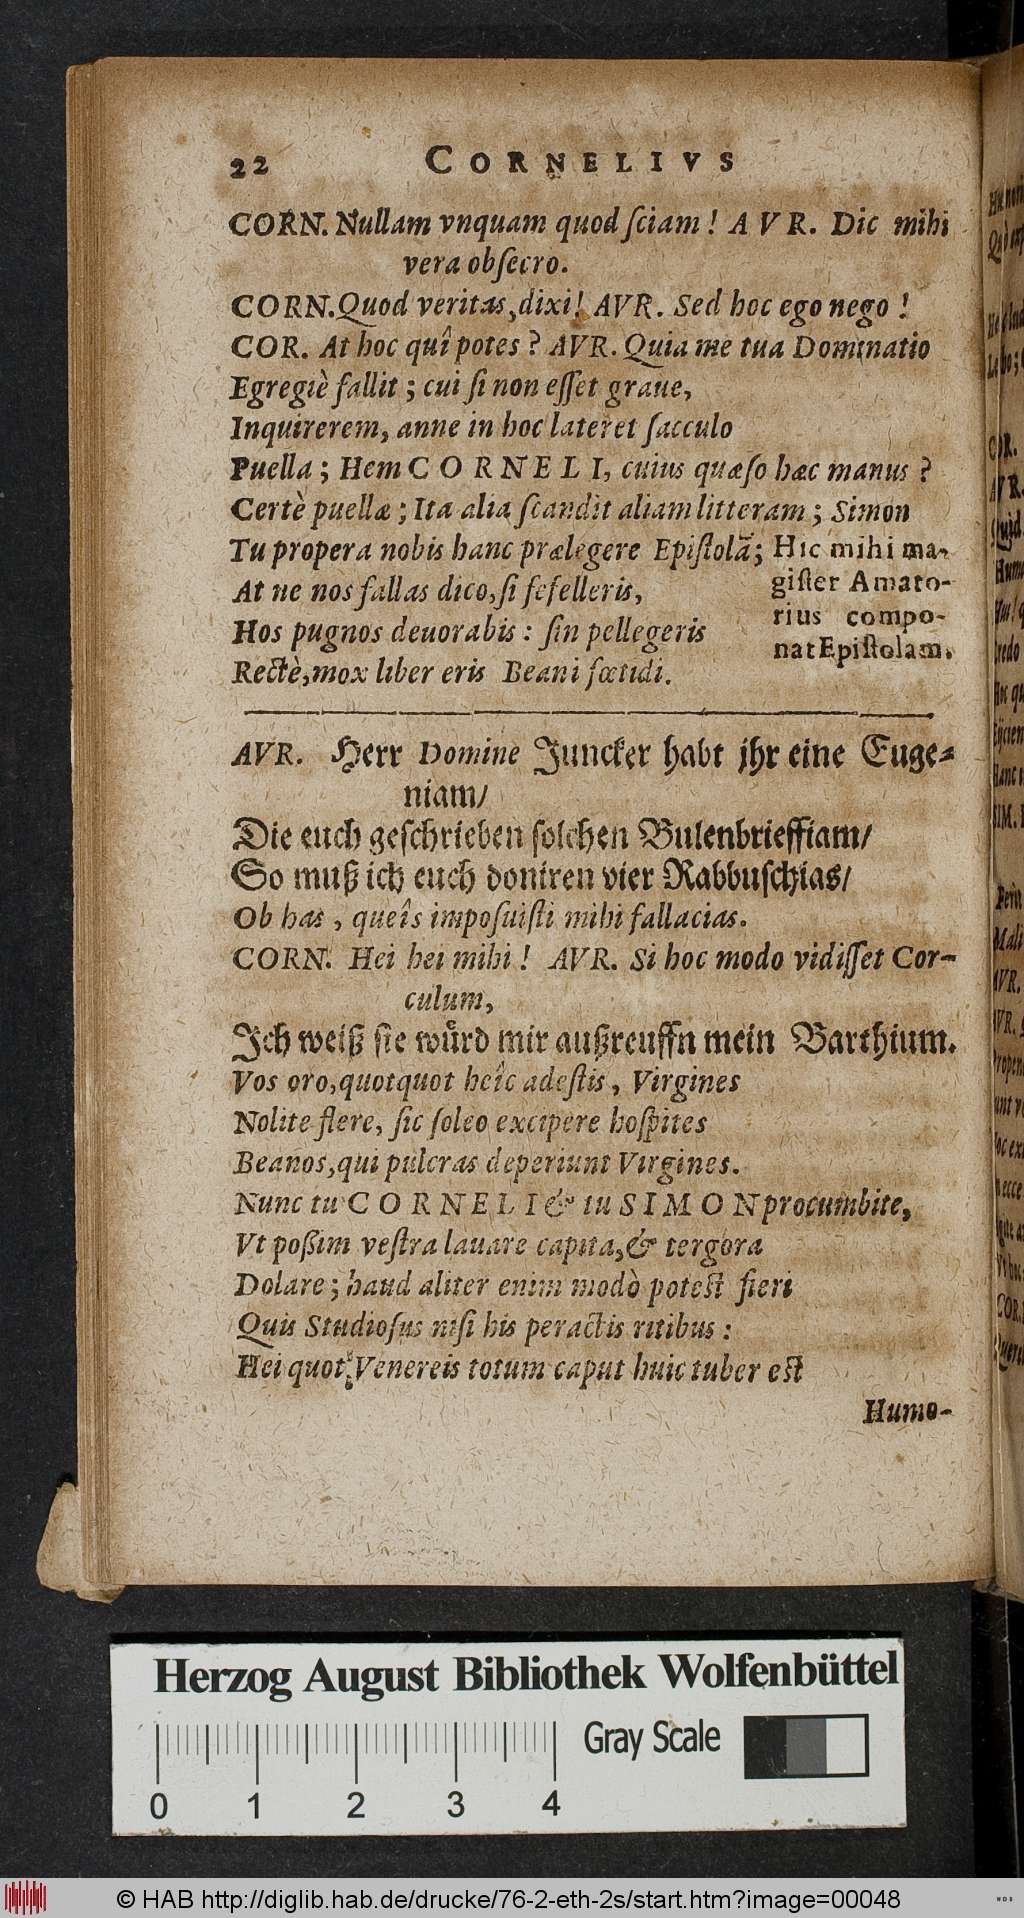 22 CORNELIVS
CORN. Nullam vnquam quod ſciam! AVR. Dic mihi
vera obſecro.
CORN. Quod veritas, dixi! AVR. Sed hoc ego nego!
COR. At hoc quî potes? AVR. Quia me tua Dominatio
Egregiè fallit; cui ſi non eſſet graue,
Inquirerem, anne in hoc lateret ſacculo
Puella; Hem CORNELI, cuius quæſo hæc manus?
Certè puellæ; Ita alia ſcandit aliam litteram; Simon
Tu propera nobis hanc prælegere Epiſtolã;
At ne nos fallas dico, ſi fefelleris,
Hos pugnos deuorabis: ſin pellegeris
Rectè, mox liber eris Beani fœtidi.
Hic mihi ma-
giſter Amato-
rius compo-
nat Epiſtolam.
AVR. Herr Domine Juncker habt jhr eine Euge-
niam/
Die euch geſchrieben ſolchen Bulenbrieffiam/
So muß ich euch doniren vier Rabbuſchias/
Ob has, queîs impoſuiſti mihi fallacias.
CORN. Hei hei mihi! AVR. Si hoc modo vidiſſet Cor-
culum,
Jch weiß ſie wuͤrd mir außreuffn mein Barthium.
Vos oro, quotquot heîc adeſtis, Virgines
Nolite flere, ſic ſoleo excipere hoſpites
Beanos, qui pulcras deperiunt Virgines.
Nunc tu CORNELI & tu SIMON procumbite,
Vt poßim veſtra lauare capita, & tergora
Dolare; haud aliter enim modò poteſt fieri
Quis Studioſus niſi his peractis ritibus:
Hei quot Venereis totum caput huic tuber eſt
Humo-
Herzog August Bibliothek Wolfenbüttel
Gray Scale
0 1 2 3 4
© HAB http://diglib.hab.de/drucke/76-2-eth-2s/start.htm?image=00048